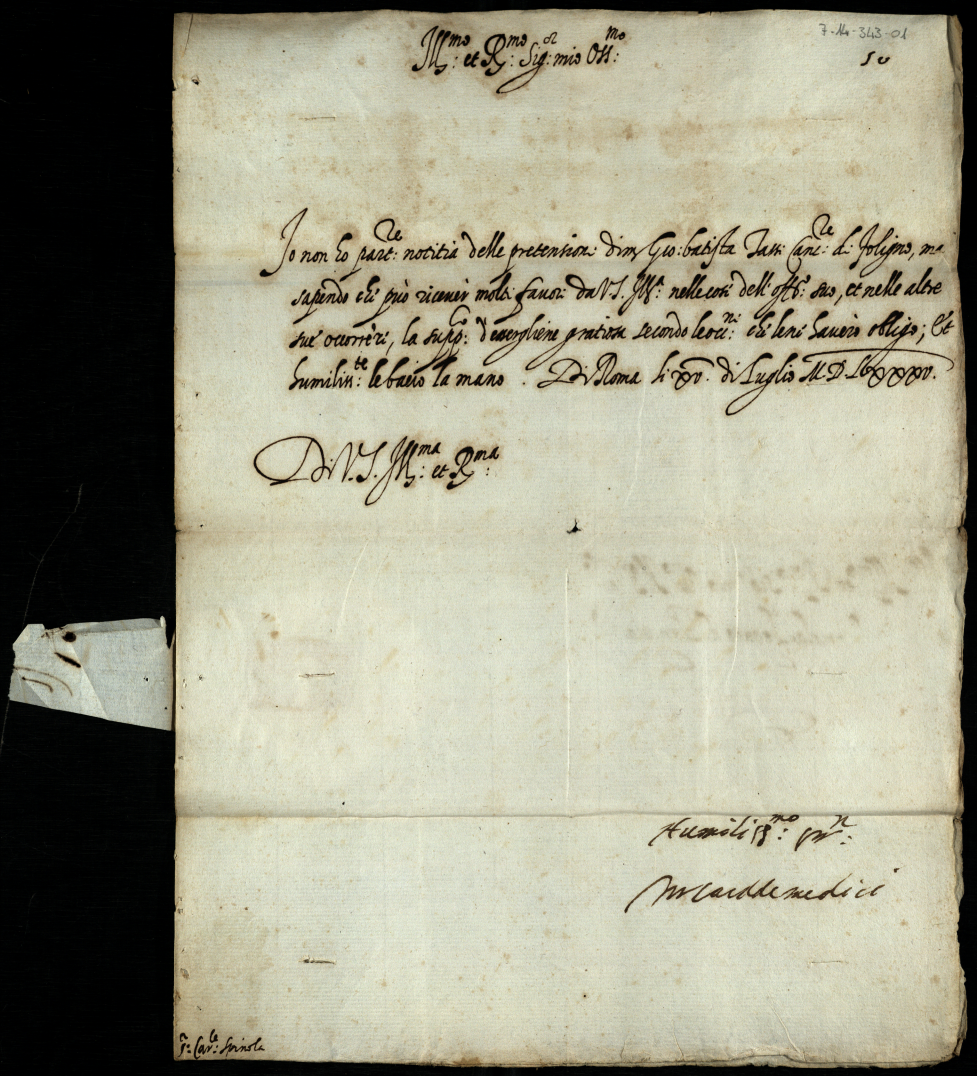 7-14-343-01
Ill.mo et R.mo Sig.or mio Oss.mo
50
Io non ho part.re notitia delle pretensioni di m. Gio: batista Canc.re di Foligno, ma
sapendo che può ricever molti favori da V.S. Ill.ma nelle cose dell' off.o suo, et nelle altre
sue occorrenze, la supp.co d'esserglene gratiosa secondo le occ.ni che le ne haverò obligo; Et
humiliss.te le bacio la mano. Di Roma li xv. di Luglio M.D.Lxxxv.
Di V.S. Ill.ma et R.ma
Humiliss.mo ser.r
Il Card de medici
S.r Car.le Spinola